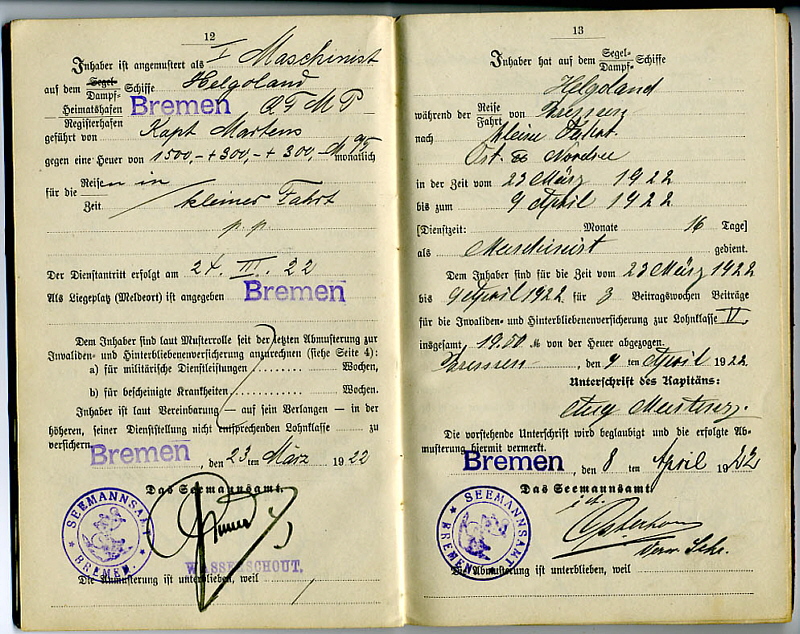 12
Inhaber ist angemustert als I Maschinist
auf dem Segel- Dampf- Schiffe Helgoland
Heimatshafen Registerhafen Bremen QFMP
geführt von Kapt Martens
gegen eine Heuer von 1500,- + 300,- + 300,- M monatlich
für die Reisen in
Zeit kleiner Fahrt
p.p.
Der Dienstantritt erfolgt am 24. III. 22
Als Liegeplatz (Meldeort) ist angegeben Bremen
Dem Inhaber sind laut Musterrolle seit der letzten Abmusterung zur
Invaliden- und Hinterbliebenenversicherung anzurechnen (siehe Seite 4):
a) für militärische Dienstleistungen Wochen,
b) für bescheinigte Krankheiten Wochen.
Inhaber ist laut Vereinbarung — auf sein Verlangen — in der
höheren, seiner Dienststellung nicht entsprechenden Lohnklasse zu
versichern.
Bremen, den 23 ten März 1922
Das Seemannsamt.
SEEMANNSAMT BREMEN
WASSERSCHOUT.
Die Anmusterung ist unterblieben, weil
13
Inhaber hat auf dem Segel- Dampf- Schiffe
Helgoland
während der Reise Fahrt von Bremen
nach kleine Fahrt
Ost. Nordsee
in der Zeit vom 23 März 1922
bis zum 9 April 1922
[Dienstzeit: Monate 16 Tage]
als Maschinist gedient.
Dem Inhaber sind für die Zeit vom 23 März 1922
bis 9 April 1922 für 3 Beitragswochen Beiträge
für die Invaliden- und Hinterbliebenenversicherung zur Lohnklasse V
insgesamt M von der Heuer abgezogen.
Bremen, den 9 ten April 1922.
Unterschrift des Kapitäns:
Aug Martens
Die vorstehende Unterschrift wird beglaubigt und die erfolgte Ab-
musterung hiermit vermerkt.
Bremen, den 8 ten April 1922
Das Seemannsamt.
SEEMANNSAMT BREMEN
Die Abmusterung ist unterblieben, weil